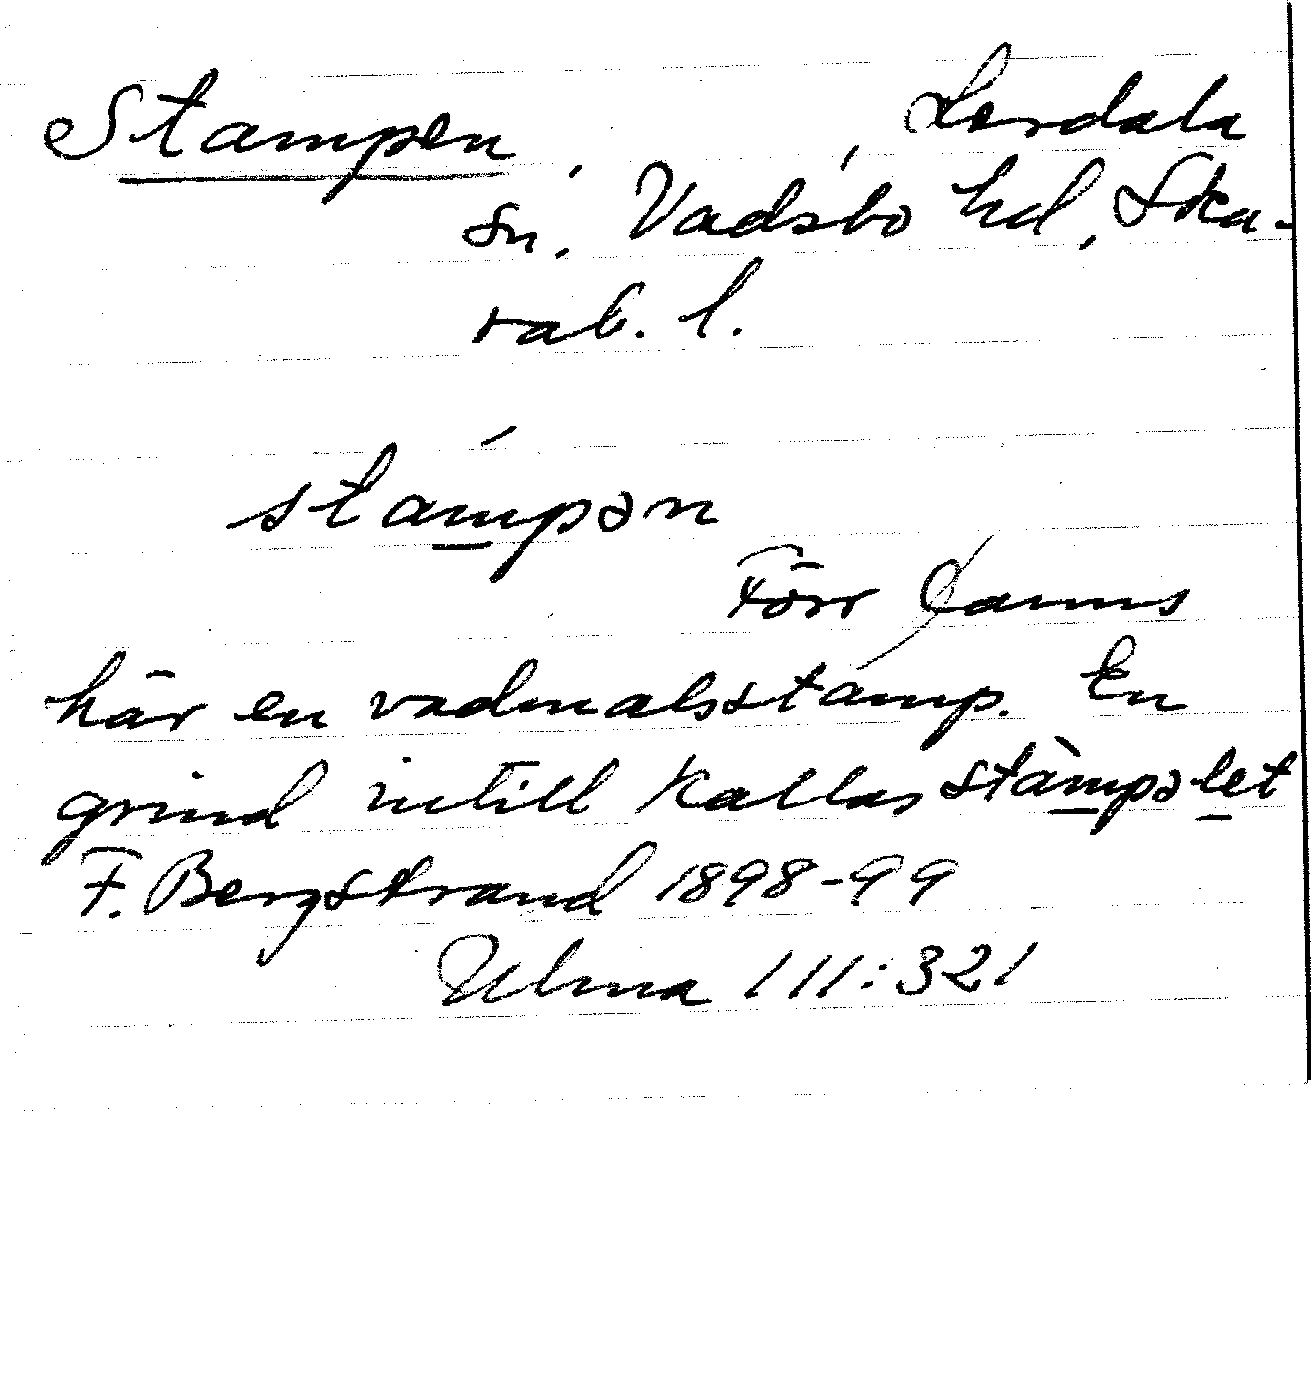 Stampen, , Lerdala
sn, Vadsbo hd, Ska-
rab. l.
stampən
Förr fanns
här en vadmalsstamp. En
grind intill kallas stàmpəlet
F. Bergstrand 1898-99
Ulma 111:321